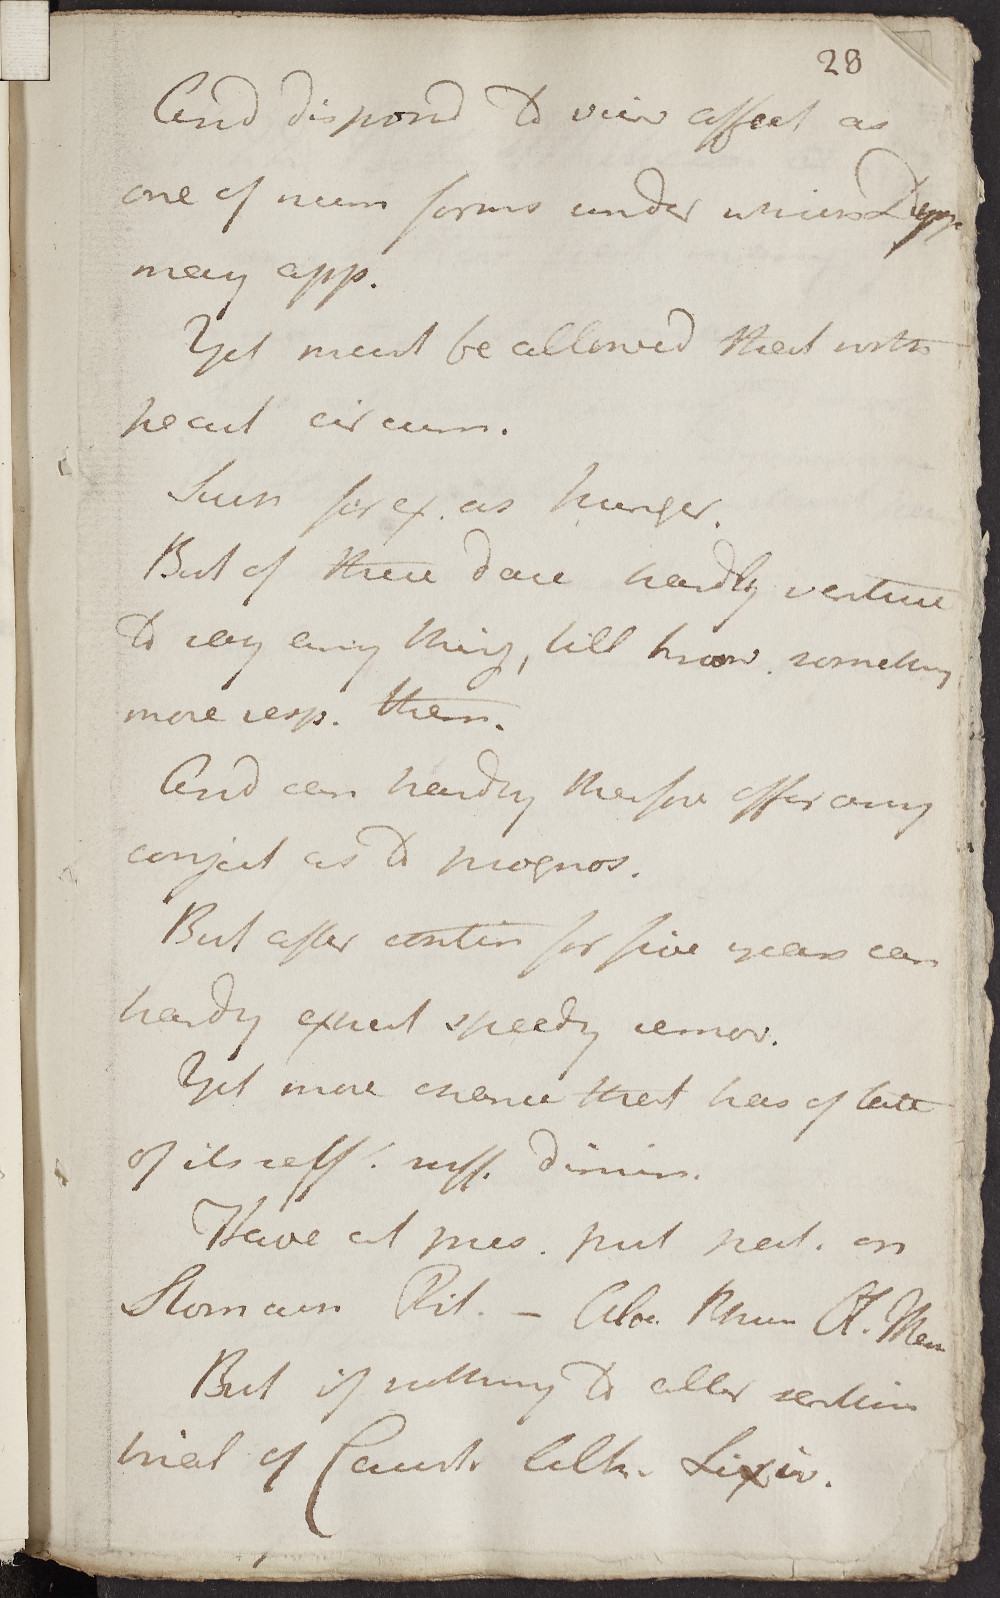 28
And dispond to view affect as
one of num forms under which Dysp.
may app.
Yet must be allowed that with
pecul circum.
Such for ex. as hunger.
But of these dare hardly venture
to say any thing, till know. something
more resp. them.
And can hardly therfore offer any
conject as to prognos.
But after contin for five years can
hardly expect speedy remov.
Yet more chance that has of late
of itself. suff. dimin.
Have at pres. put pat. on
Stomach Pil. - Aloe Rheum Ol. Men
But if nothing to alter sentim
trial of Caust. Alk. Lixiv.